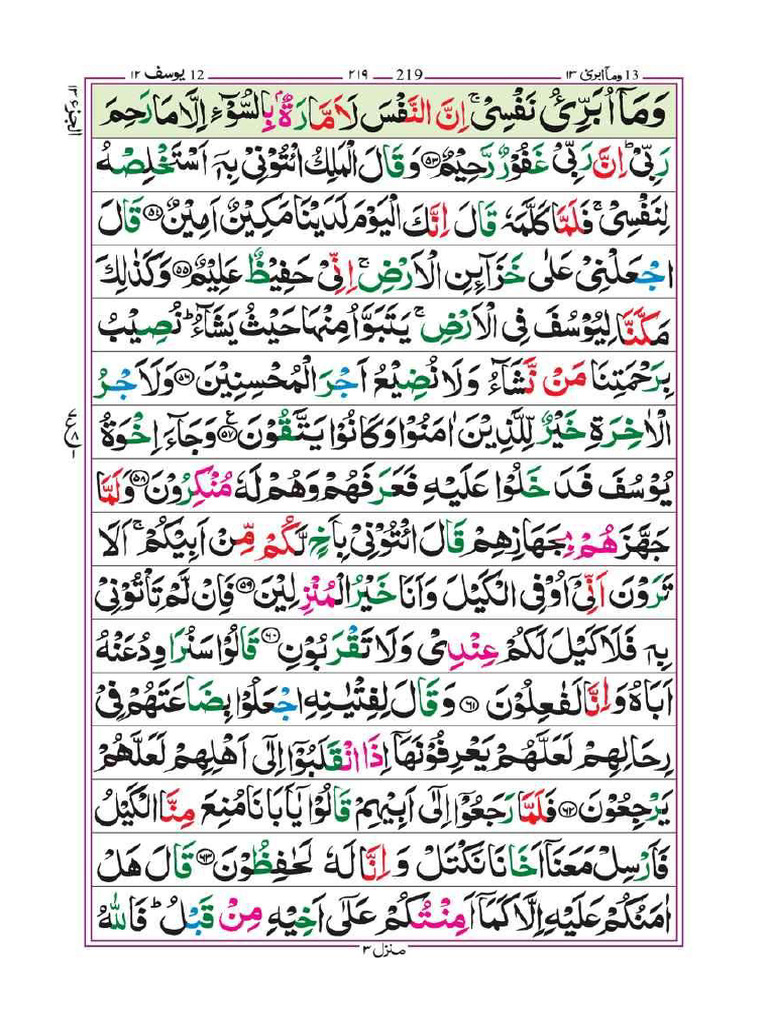 13 وما ابرئ ١٣ 219 ٢١٩ 12 يوسف ١٢
الجزء ١٣
وَمَاۤ اُبَرِّئُ نَفۡسِىۡ‌ۚ اِنَّ النَّفۡسَ لَاَمَّارَةٌۢ بِالسُّوۡٓءِ اِلَّا مَا رَحِمَ
رَبِّىۡ ؕ اِنَّ رَبِّىۡ غَفُوۡرٌ رَّحِيۡمٌ‏ ﴿۵۳﴾ وَقَالَ الۡمَلِكُ ائۡتُوۡنِىۡ بِهٖۤ اَسۡتَخۡلِصۡهُ
لِنَفۡسِىۡ‌ۚ فَلَمَّا كَلَّمَهٗ قَالَ اِنَّكَ الۡيَوۡمَ لَدَيۡنَا مَكِيۡنٌ اَمِيۡنٌ‏ ﴿۵۴﴾ قَالَ
اجۡعَلۡنِىۡ عَلٰى خَزَآٮِٕنِ الۡاَرۡضِ‌ۚ اِنِّىۡ حَفِيۡظٌ عَلِيۡمٌ‏ ﴿۵۵﴾ وَكَذٰلِكَ
مَكَّنَّا لِيُوۡسُفَ فِى الۡاَرۡضِ‌ۚ يَتَبَوَّاُ مِنۡهَا حَيۡثُ يَشَآءُ‌ ؕ نُصِيۡبُ
بِرَحۡمَتِنَا مَنۡ نَّشَآءُ‌ وَلَا نُضِيۡعُ اَجۡرَ الۡمُحۡسِنِيۡنَ‏ ﴿۵۶﴾ وَلَاَجۡرُ
الۡاٰخِرَةِ خَيۡرٌ لِّلَّذِيۡنَ اٰمَنُوۡا وَكَانُوۡا يَتَّقُوۡنَ‏ ﴿۵۷﴾ ع وَجَآءَ اِخۡوَةُ
ع ٨
يُوۡسُفَ فَدَخَلُوۡا عَلَيۡهِ فَعَرَفَهُمۡ وَهُمۡ لَهٗ مُنۡكِرُوۡنَ‏ ﴿۵۸﴾ وَلَمَّا
جَهَّزَهُمۡ بِجَهَازِهِمۡ قَالَ ائۡتُوۡنِىۡ بِاَخٍ لَّكُمۡ مِّنۡ اَبِيۡكُمۡ‌ۚ اَلَا
تَرَوۡنَ اَنِّىۡۤ اُوۡفِى الۡكَيۡلَ وَاَنَا خَيۡرُ الۡمُنۡزِلِيۡنَ‏ ﴿۵۹﴾ فَاِنۡ لَّمۡ تَاۡتُوۡنِىۡ
بِهٖ فَلَا كَيۡلَ لَكُمۡ عِنۡدِىۡ وَلَا تَقۡرَبُوۡنِ‏ ﴿۶۰﴾ قَالُوۡا سَنُرَاوِدُ عَنۡهُ
اَبَاهُ وَاِنَّا لَفٰعِلُوۡنَ‏ ﴿۶۱﴾ وَقَالَ لِفِتۡيٰنِهِ اجۡعَلُوۡا بِضَاعَتَهُمۡ فِىۡ
رِحَالِهِمۡ لَعَلَّهُمۡ يَعۡرِفُوۡنَهَاۤ اِذَا انْقَلَبُوۡۤا اِلٰٓى اَهۡلِهِمۡ لَعَلَّهُمۡ
يَرۡجِعُوۡنَ‏ ﴿۶۲﴾ فَلَمَّا رَجَعُوۡۤا اِلٰٓى اَبِيۡهِمۡ قَالُوۡا يٰۤاَبَانَا مُنِعَ مِنَّا الۡكَيۡلُ
فَاَرۡسِلۡ مَعَنَاۤ اَخَانَا نَكۡتَلۡ وَاِنَّا لَهٗ لَحٰفِظُوۡنَ‏ ﴿۶۳﴾ قَالَ هَلۡ
اٰمَنُكُمۡ عَلَيۡهِ اِلَّا كَمَاۤ اَمِنۡتُكُمۡ عَلٰٓى اَخِيۡهِ مِنۡ قَبۡلُ‌ ؕ فَاللّٰهُ
منزل ٣